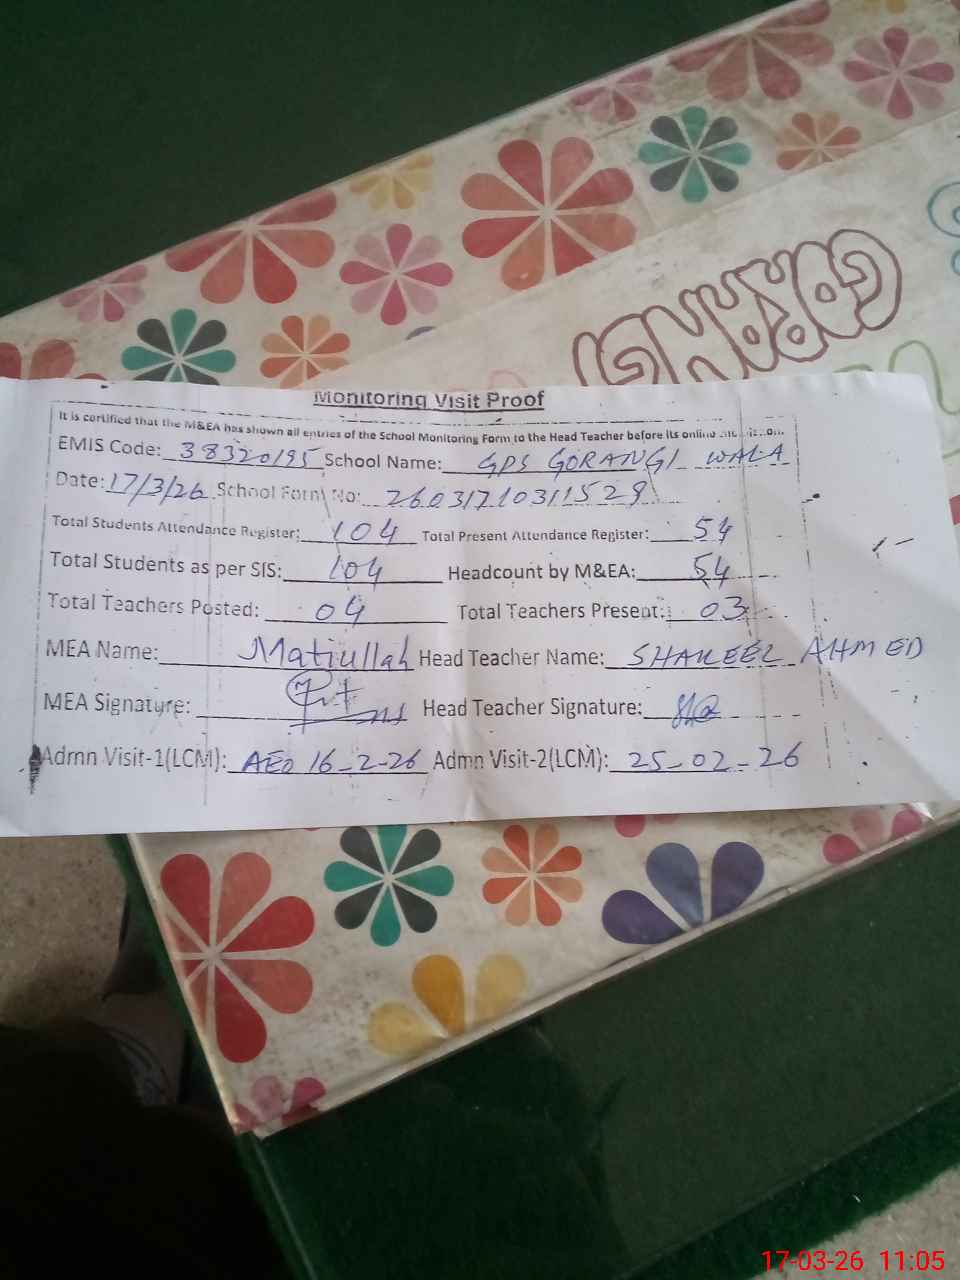 GORANGI
Monitoring Visit Proof
It is certified that the M&EA has shown all entries of the School Monitoring Form to the Head Teacher before its online
EMIS Code: 38320195 School Name: GPS GORANGI WALA
Date: 17/3/26 School Form No: 26031710311529
Total Students Attendance Register: 104 Total Present Attendance Register: 54
Total Students as per SIS: 104 Headcount by M&EA: 54
Total Teachers Posted: 04 Total Teachers Present: 03
MEA Name: Matiullah Head Teacher Name: SHAKEEL AHMED
MEA Signature: Head Teacher Signature:
Admn Visit-1(LCM): AEO 16-2-26 Admn Visit-2(LCM): 25-02-26
17-03-26 11:05